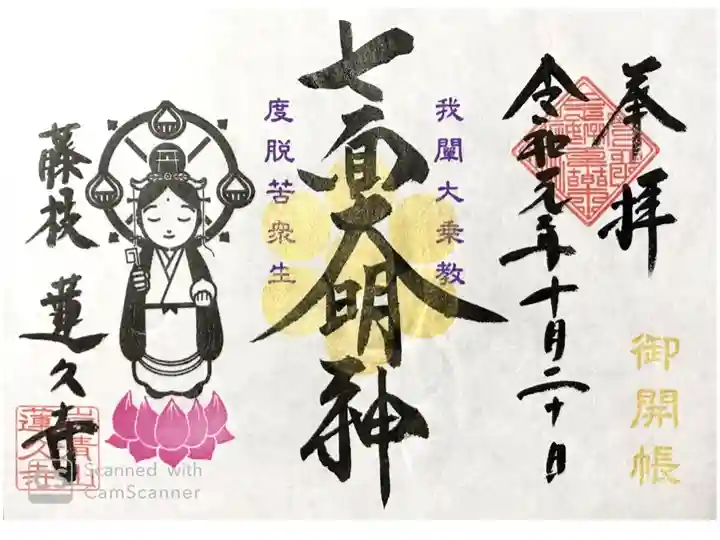 奉拝
御開帳
令和元年十月二十日
我闡大乗教
七面大明神
度脱苦衆生
藤枝 蓮久寺
岩清山
蓮久寺
CS Scanned with
CamScanner